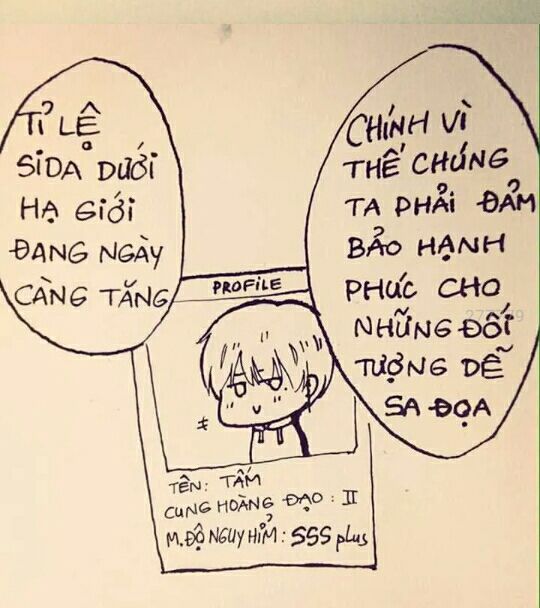 TỈ LỆ
SIDA DƯỚI
HẠ GIỚI
ĐANG NGÀY
CÀNG TĂNG
CHÍNH VÌ
THẾ CHÚNG
TA PHẢI ĐẢM
BẢO HẠNH
PHÚC CHO
NHỮNG ĐỐI
TƯỢNG DỄ
SA ĐỌA
PROFILE
TÊN: TẤM
CUNG HOÀNG ĐẠO: II
M.ĐỘ NGUY HỈM: SSS plus